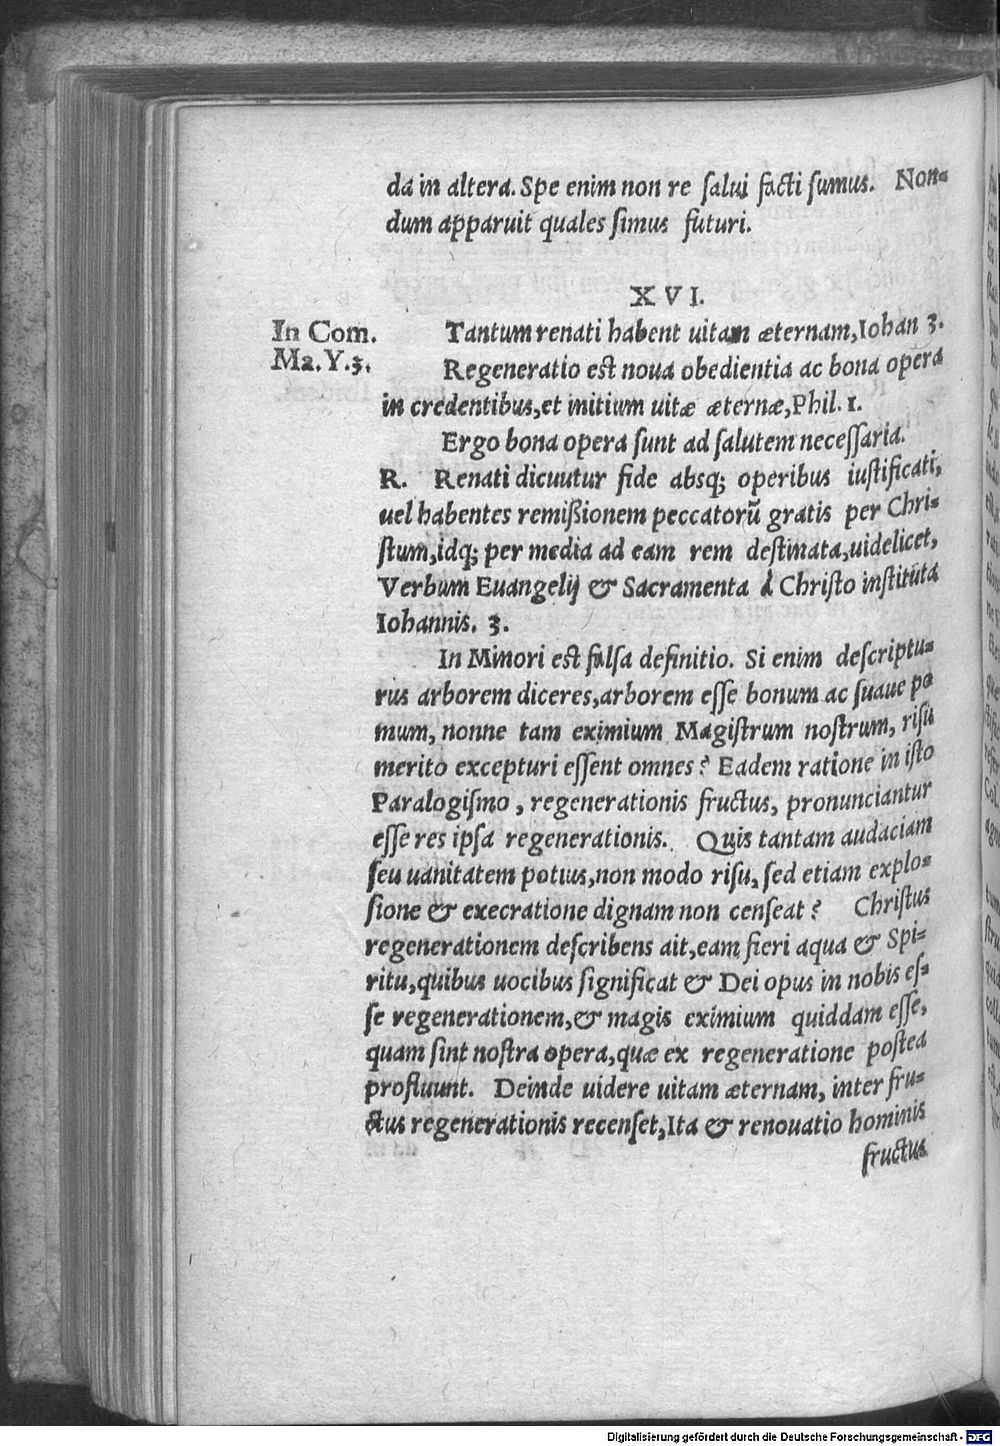 da in altera. Spe enim non re ſalui facti ſumus. Non-
dum apparuit quales ſimus futuri.
XVI.
In Com.
Ma. Y.3.
Tantum renati habent uitam æternam, Iohan 3.
Regeneratio est noua obedientia ac bona opera
in credentibus, et initium uitæ æternæ, Phil. 1.
Ergo bona opera ſunt ad ſalutem neceſſaria.
R. Renati dicuutur fide absq; operibus iuſtificati,
uel habentes remißionem peccatorũ gratis per Chri-
ſtum, idq; per media ad eam rem deſtinata, uidelicet,
Verbum Euangelij & Sacramenta à Chriſto inſtituta
Iohannis. 3.
In Minori est falſa definitio. Si enim deſcriptu-
rus arborem diceres, arborem eſſe bonum ac ſuaue po
mum, nonne tam eximium Magiſtrum noſtrum, riſu
merito excepturi eſſent omnes? Eadem ratione in iſto
Paralogiſmo, regenerationis fructus, pronunciantur
eſſe res ipſa regenerationis. Quis tantam audaciam
ſeu uanitatem potius, non modo riſu, ſed etiam explo-
ſione & execratione dignam non cenſeat? Chriſtus
regenerationem deſcribens ait, eam fieri aqua & Spi-
ritu, quibus uocibus ſignificat & Dei opus in nobis eſ-
ſe regenerationem, & magis eximium quiddam eſſe,
quam ſint noſtra opera, quæ ex regeneratione poſtea
profluunt. Deinde uidere uitam æternam, inter fru-
ctus regenerationis recenſet, Ita & renouatio hominis
fructus
Digitalisierung gefördert durch die Deutsche Forschungsgemeinschaft - DFG